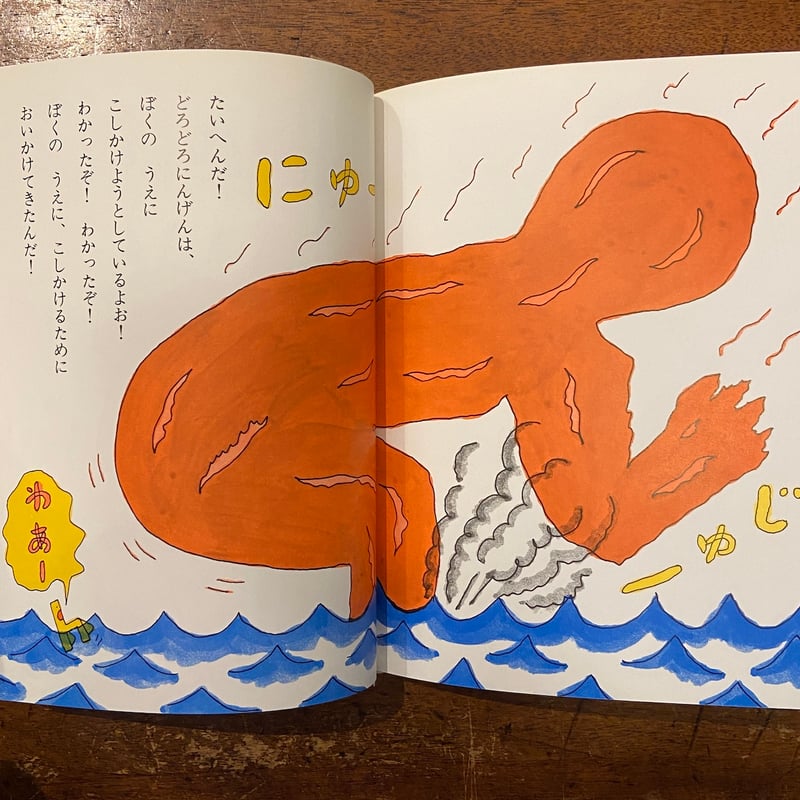 たいへんだ！
どろどろにんげんは、
ぼくの　うえに
こしかけようとしているよお！
わかったぞ！　わかったぞ！
ぼくの　うえに、こしかけるために
おいかけてきたんだ！
にゅー
わあー
じゅー